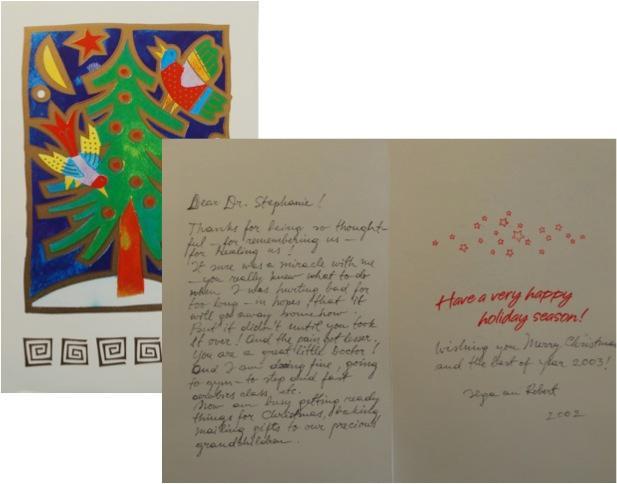 Dear Dr. Stephanie!
Thanks for being so thought-
ful - for remembering us -
for healing us!
It sure was a miracle with me
- you really knew what to do
when I was hurting bad for
too long - in hopes that it
will go away somehow.
But it didn't until you took
it over! And the pain got lesser.
You are a great little Doctor!
And I am doing fine, going
to gym - to step and fast
aerobics class etc.
Now am busy getting ready
things for Christmas, baking,
mailing gifts to our precious
grandchildren.
Have a very happy
holiday season!
Wishing you Merry Christmas
and the best of year 2003!
an Robert
2002